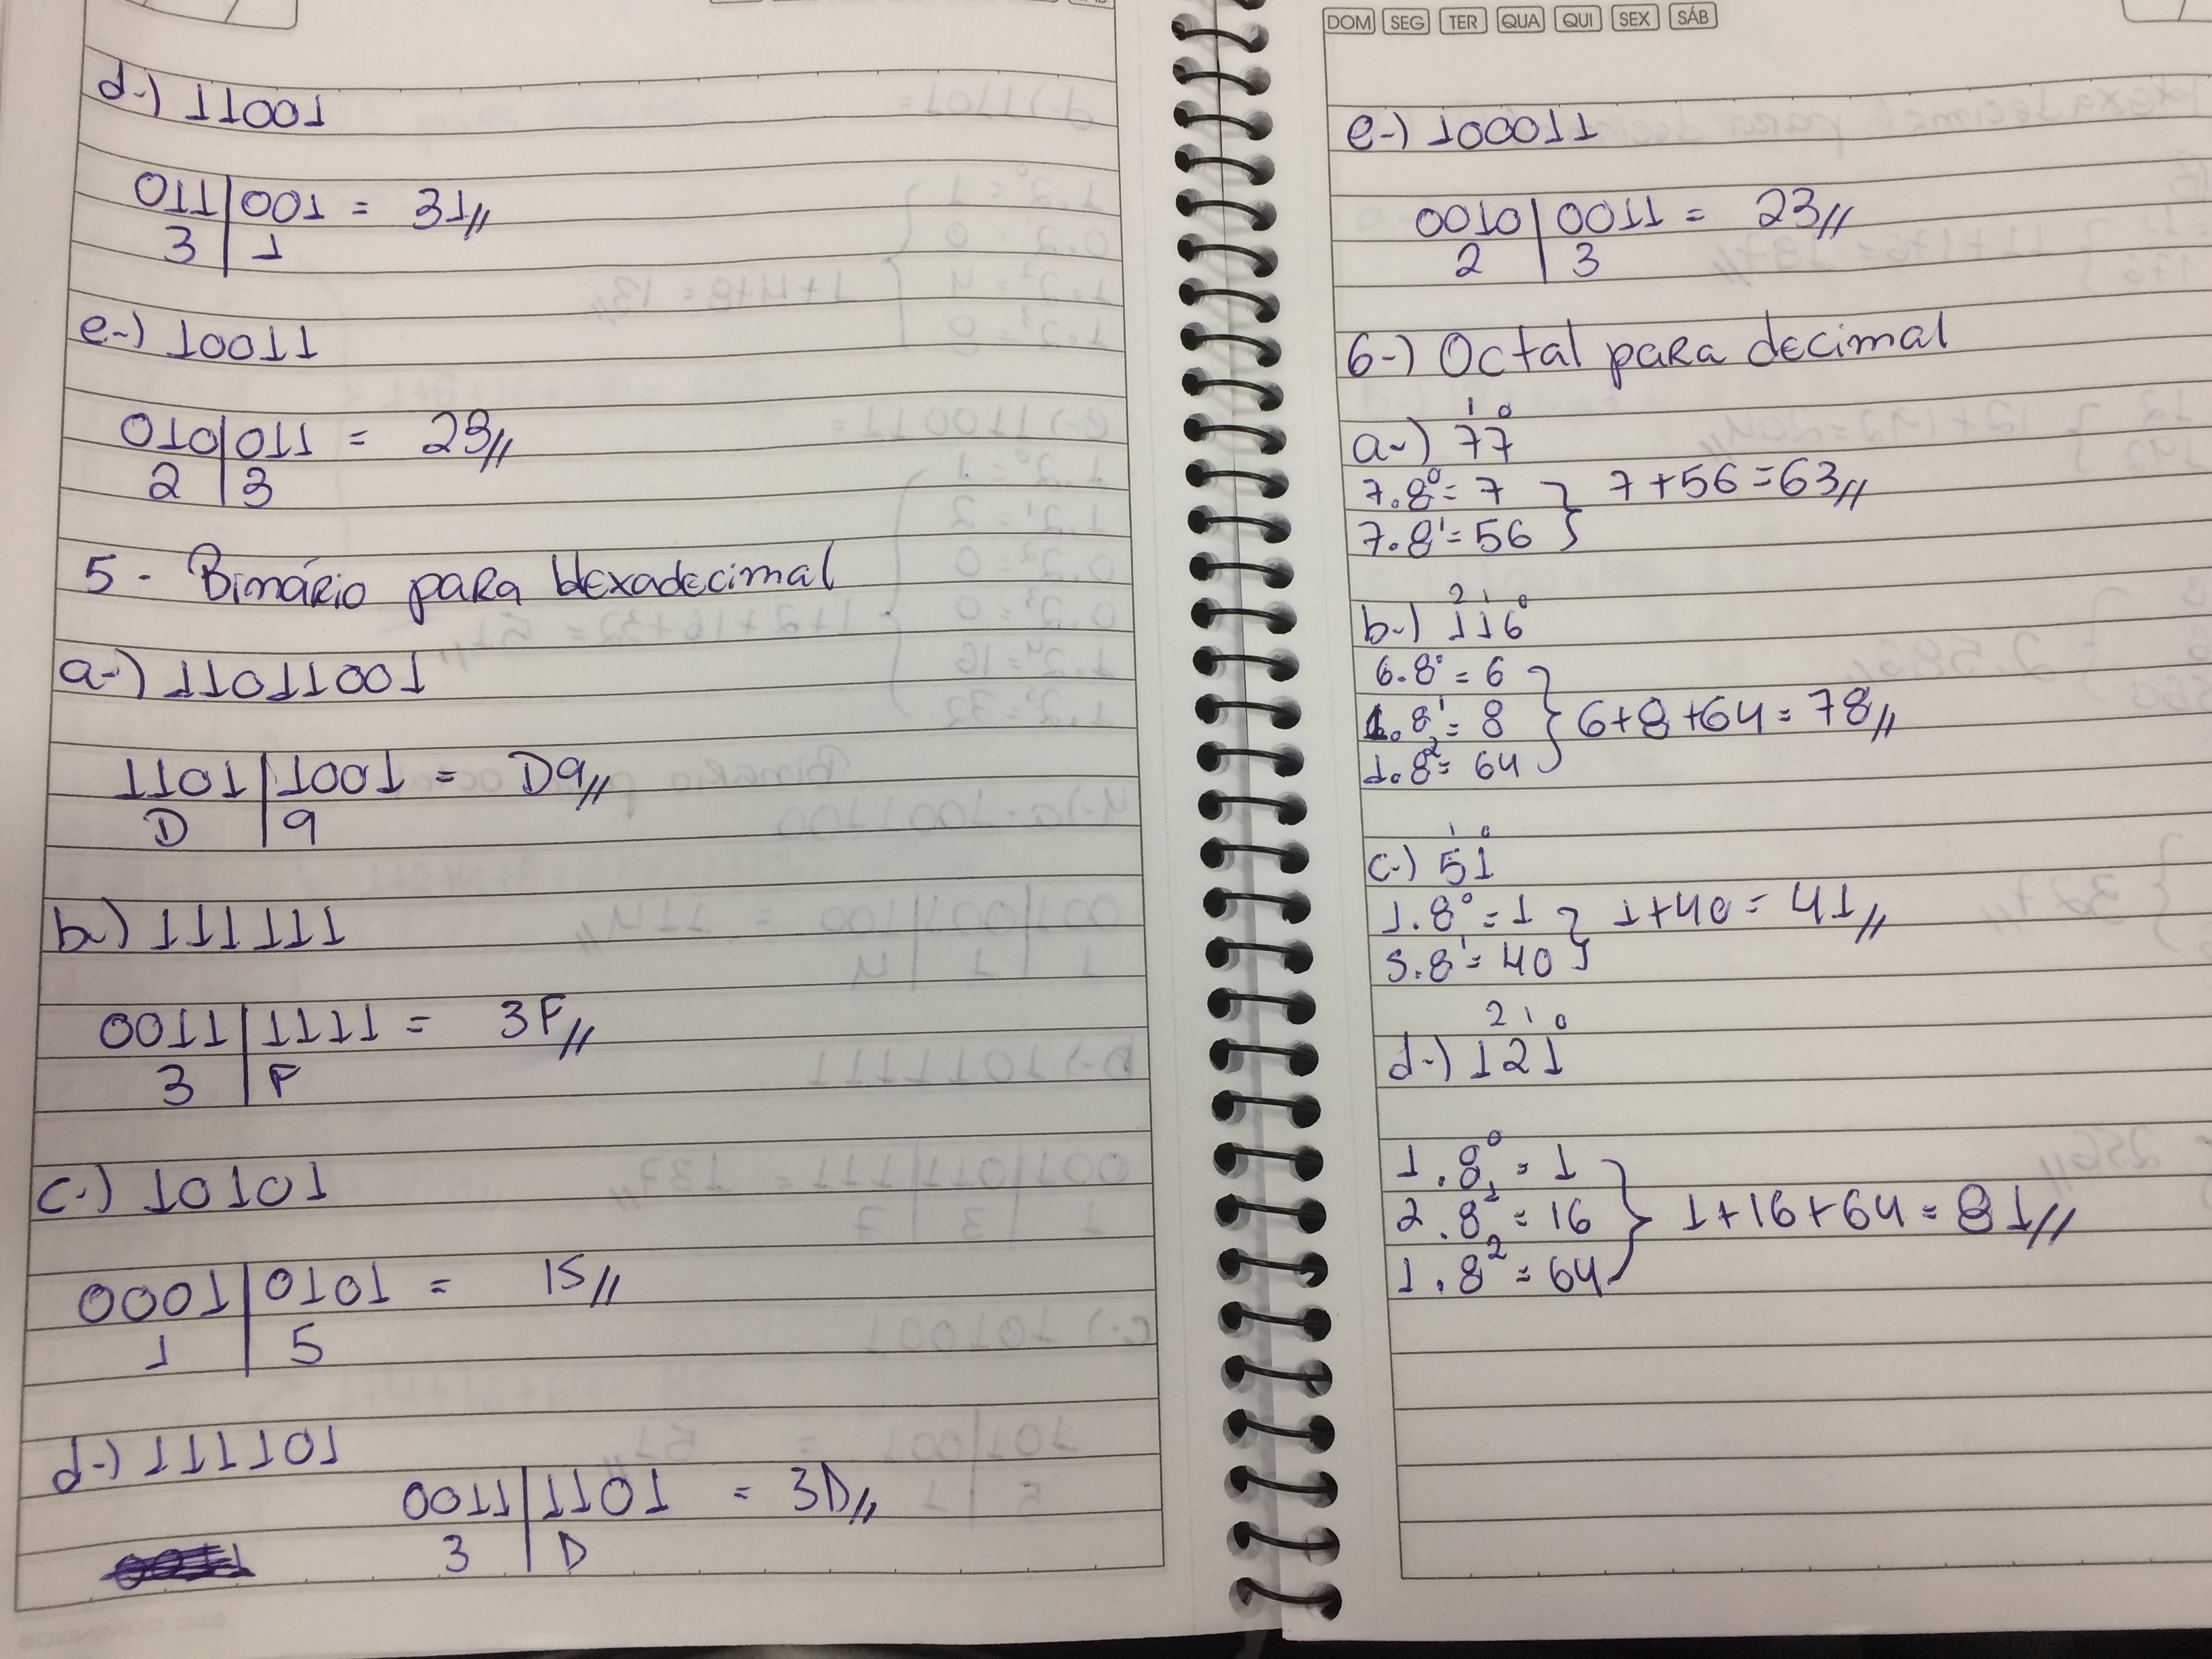 d-) 11001
011|001 = 31//
3 | 1
e-) 10011
010|011 = 23//
2 | 3
5 - Binário para hexadecimal
a-) 11011001
1101|1001 = D9//
D | 9
b-) 111111
0011|1111 = 3F//
3 | F
c-) 10101
0001|0101 = 15//
1 | 5
d-) 111101
0011|1101 = 3D//
3 | D
DOM SEG TER QUA QUI SEX SÁB
e-) 100011
0010|0011 = 23//
2 | 3
6-) Octal para decimal
a-) 7¹7⁰
7.8⁰= 7
7.8¹= 56 } 7+56=63//
b-) 1²1¹6⁰
6.8⁰= 6
1.8¹= 8 } 6+8+64=78//
1.8²= 64
c-) 5¹1⁰
1.8⁰= 1 } 1+40= 41//
5.8¹= 40
d-) 1²2¹1⁰
1.8⁰= 1
2.8¹= 16 } 1+16+64=81//
1.8²= 64